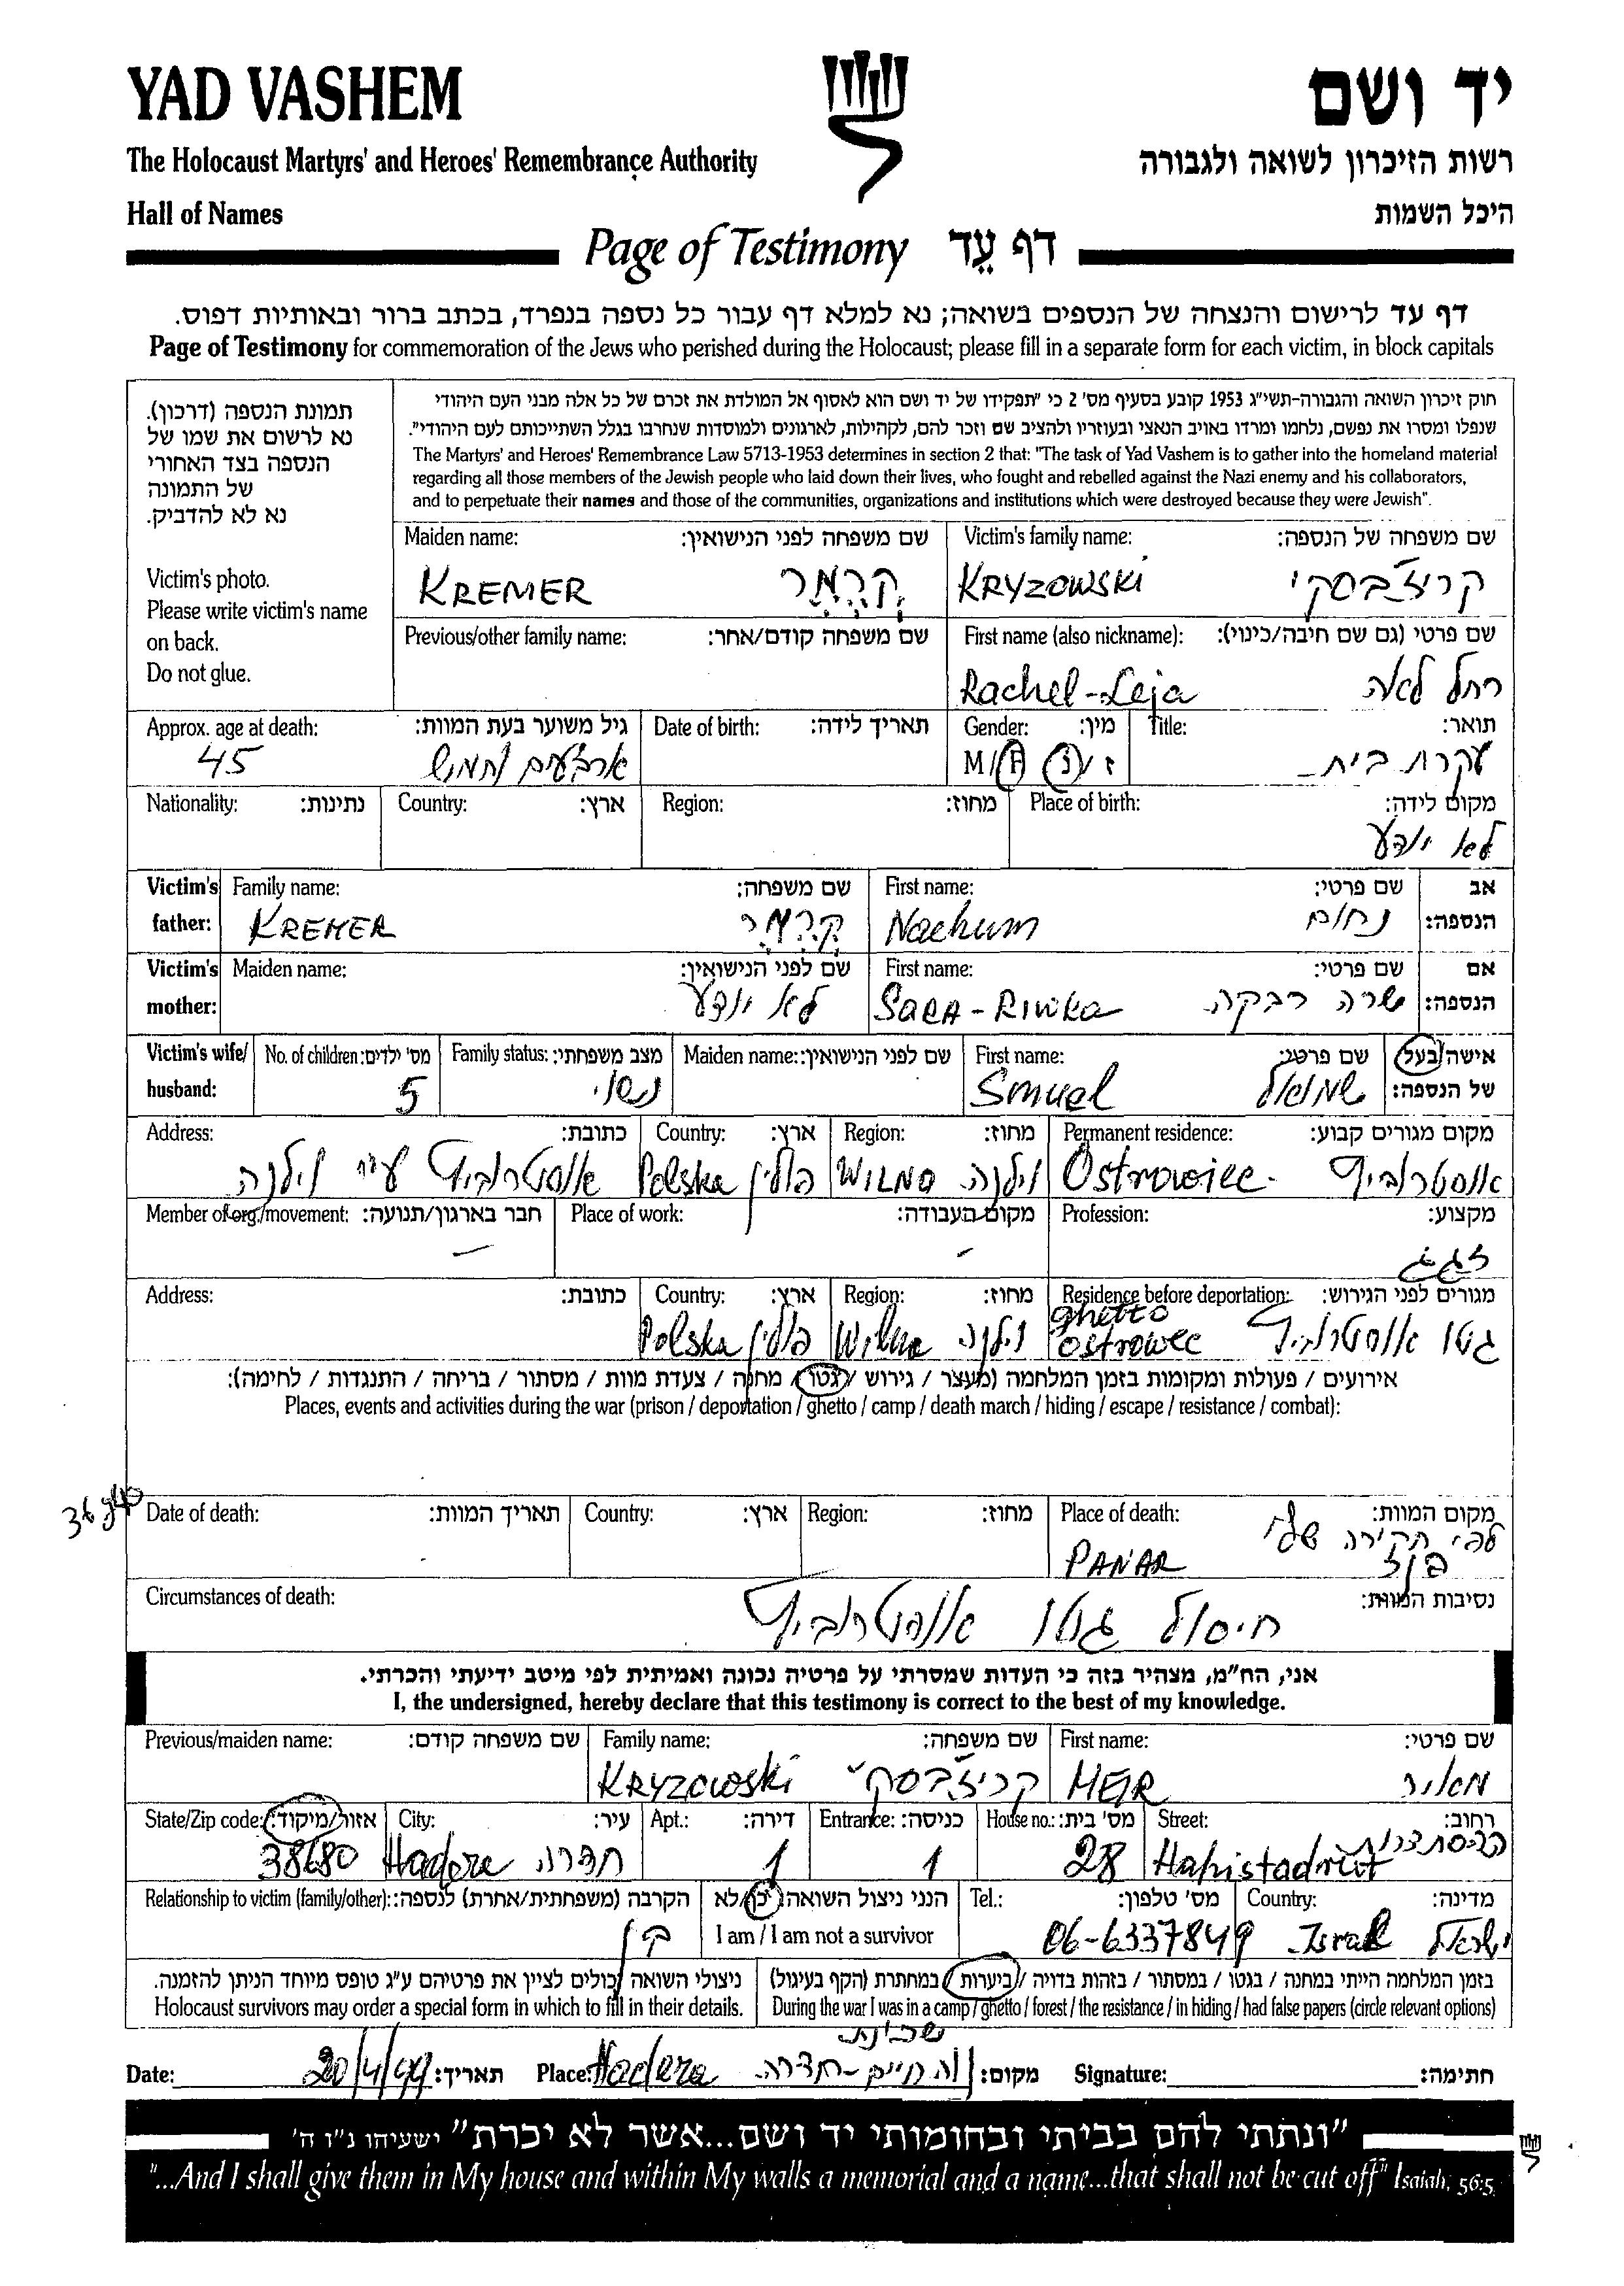 YAD VASHEM
יד ושם
The Holocaust Martyrs' and Heroes' Remembrance Authority
רשות הזיכרון לשואה ולגבורה
Hall of Names
היכל השמות
Page of Testimony דף עֵד
דף עד לרישום והנצחה של הנספים בשואה; נא למלא דף עבור כל נספה בנפרד, בכתב ברור ובאותיות דפוס.
Page of Testimony for commemoration of the Jews who perished during the Holocaust; please fill in a separate form for each victim, in block capitals
תמונת הנספה (דרכון).
נא לרשום את שמו של
הנספה בצד האחורי
של התמונה
נא לא להדביק.
Victim's photo.
Please write victim's name
on back.
Do not glue.
חוק זיכרון השואה והגבורה-תשי"ג 1953 קובע בסעיף מס' 2 כי "תפקידו של יד ושם הוא לאסוף אל המולדת את זכרם של כל אלה מבני העם היהודי
שנפלו ומסרו את נפשם, נלחמו ומרדו באויב הנאצי ובעוזריו ולהציב שם וזכר להם, לקהילות, לארגונים ולמוסדות שנחרבו בגלל השתייכותם לעם היהודי".
The Martyrs' and Heroes' Remembrance Law 5713-1953 determines in section 2 that: "The task of Yad Vashem is to gather into the homeland material
regarding all those members of the Jewish people who laid down their lives, who fought and rebelled against the Nazi enemy and his collaborators,
and to perpetuate their names and those of the communities, organizations and institutions which were destroyed because they were Jewish".
Maiden name: שם משפחה לפני הנישואין:
KREMER קְרֶמֶר
Victim's family name: שם משפחה של הנספה:
KRYZOWSKI קריז'בסקי
Previous/other family name: שם משפחה קודם/אחר:
First name (also nickname): שם פרטי (גם שם חיבה/כינוי):
Rachel-Leja רחל לאה
Approx. age at death: גיל משוער בעת המוות:
45 ארבעים וחמש
Date of birth: תאריך לידה:
Gender: מין:
M/F ז/נ
Title: תואר:
עקרת בית
Nationality: נתינות:
Country: ארץ:
Region: מחוז:
Place of birth: מקום לידה:
לא יודע
Victim's father: אב הנספה:
Family name: שם משפחה:
KREMER קְרֶמֶר
First name: שם פרטי:
Nachum נחום
Victim's mother: אם הנספה:
Maiden name: שם לפני הנישואין:
לא יודע
First name: שם פרטי:
SARA-Riwka שרה רבקה
Victim's wife/ husband: אישה/בעל של הנספה:
No. of children: מס' ילדים:
5
Family status: מצב משפחתי:
נשוי
Maiden name: שם לפני הנישואין:
First name: שם פרטי:
Smuel שמואל
Address: כתובת:
אוסטרובייץ ע"י וילנה
Country: ארץ:
Polska פולין
Region: מחוז:
WILNO וילנה
Permanent residence: מקום מגורים קבוע:
Ostrowiec אוסטרובייץ
Member of org./movement: חבר בארגון/תנועה:
-
Place of work: מקום העבודה:
-
Profession: מקצוע:
זגג
Address: כתובת:
Country: ארץ:
Polska פולין
Region: מחוז:
Wilna וילנה
Residence before deportation: מגורים לפני הגירוש:
ghetto
ostrowec גטו אוסטרובייץ
אירועים / פעולות ומקומות בזמן המלחמה (מעצר / גירוש / גטו / מחנה / צעדת מוות / מסתור / בריחה / התנגדות / לחימה):
Places, events and activities during the war (prison / deportation / ghetto / camp / death march / hiding / escape / resistance / combat):
Date of death: תאריך המוות:
Country: ארץ:
Region: מחוז:
Place of death: מקום המוות:
לפי חקירה שלי
PANAR
Circumstances of death: נסיבות המוות:
חיסול גטו אוסטרובייץ
אני, הח"מ, מצהיר בזה כי העדות שמסרתי על פרטיה נכונה ואמיתית לפי מיטב ידיעתי והכרתי.
I, the undersigned, hereby declare that this testimony is correct to the best of my knowledge.
Previous/maiden name: שם משפחה קודם:
Family name: שם משפחה:
KRYZOWSKI קריז'בסקי
First name: שם פרטי:
MEJR מאיר
State/Zip code: אזור/מיקוד:
38680
City: עיר:
Hadera חדרה
Apt.: דירה:
1
Entrance: כניסה:
1
House no.: מס' בית:
28
Street: רחוב:
Hahistadrut ההסתדרות
Relationship to victim (family/other): הקרבה (משפחתית/אחרת) לנספה:
בן
הנני ניצול השואה: כן/לא
I am / I am not a survivor
Tel.: מס' טלפון:
06-6337849
Country: מדינה:
Israel ישראל
ניצולי השואה יכולים לציין את פרטיהם ע"ג טופס מיוחד הניתן להזמנה.
Holocaust survivors may order a special form in which to fill in their details.
בזמן המלחמה הייתי במחנה / בגטו / במסתור / בזהות בדויה / ביערות / במחתרת (הקף בעיגול)
During the war I was in a camp / ghetto / forest / the resistance / in hiding / had false papers (circle relevant options)
שכונת
Date: 20/4/99 תאריך: Place: Hadera נוה חיים-חדרה מקום: Signature: חתימה:
"ונתתי להם בביתי ובחומותי יד ושם...אשר לא יכרת" ישעיהו נ"ו ה'
"...And I shall give them in My house and within My walls a memorial and a name...that shall not be cut off" Isaiah, 56:5